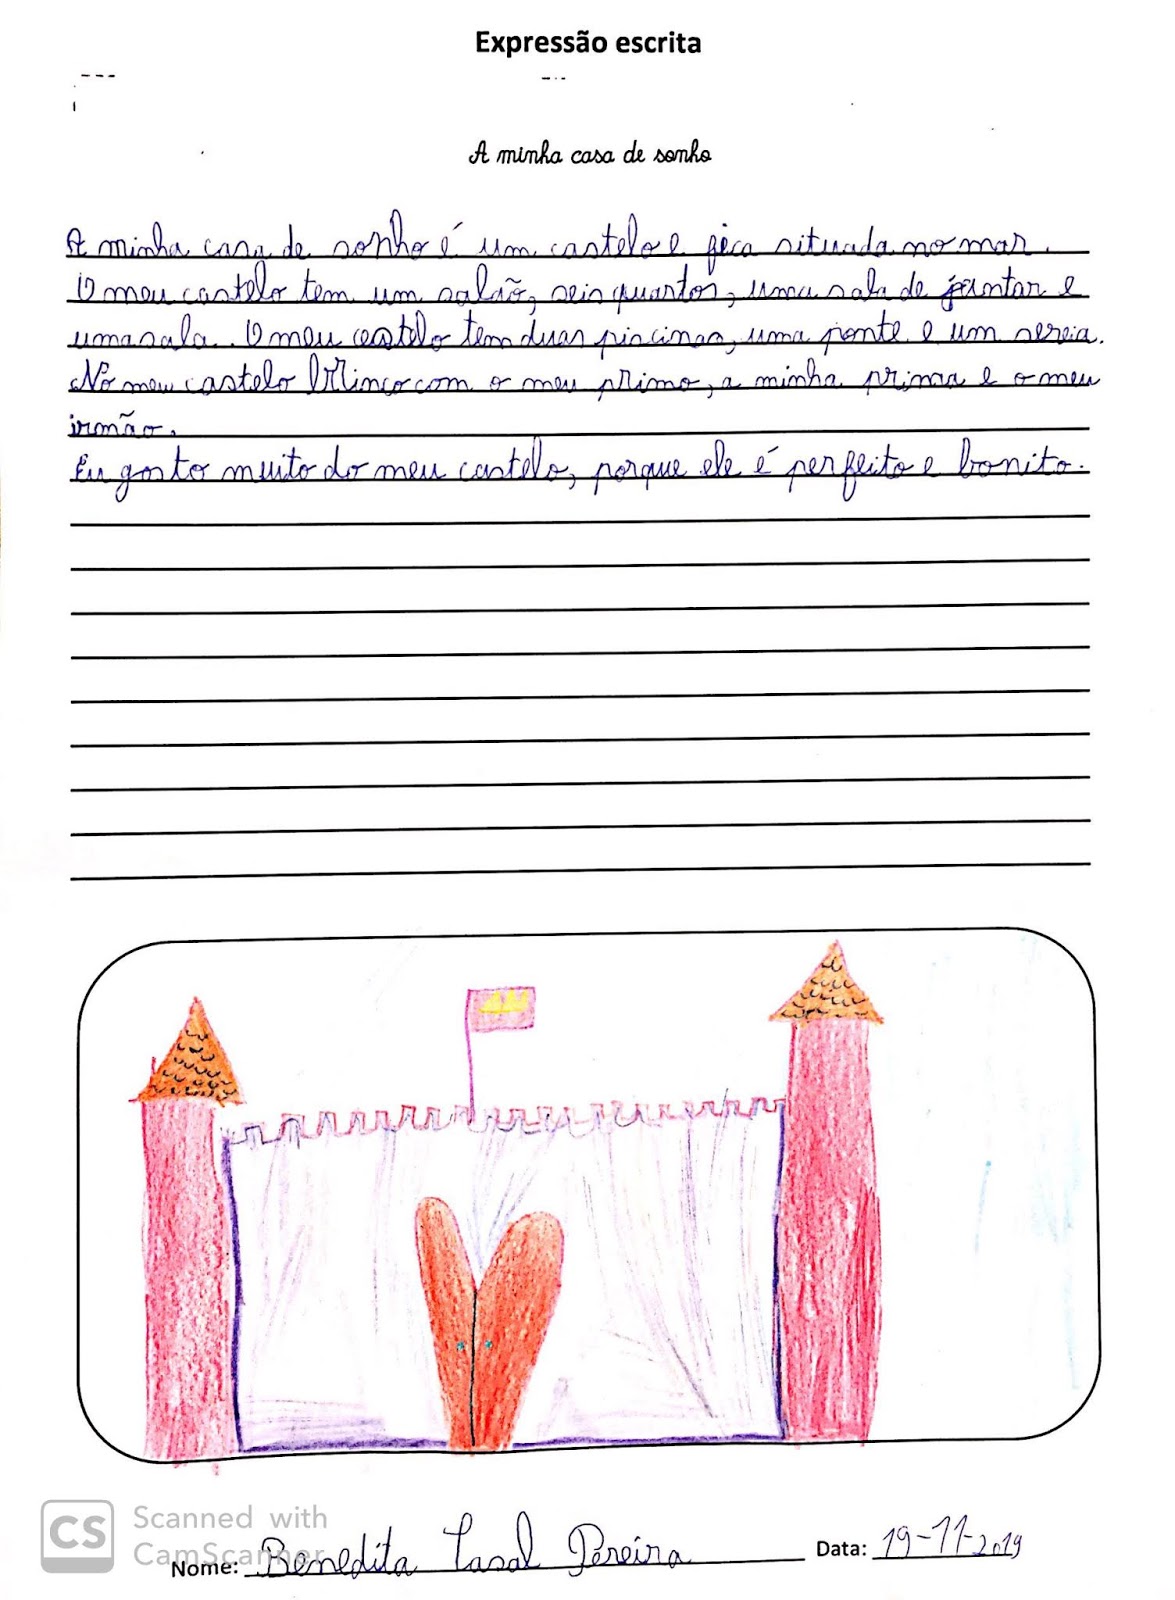 Expressão escrita
A minha casa de sonho
A minha casa de sonho é um castelo e fica situada no mar.
O meu castelo tem um salão, seis quartos, uma sala de jantar e
uma sala. O meu castelo tem duas piscinas, uma ponte e um sereia.
No meu castelo brinco com o meu primo, a minha prima e o meu
irmão.
Eu gosto muito do meu castelo, porque ele é perfeito e bonito.
CS Scanned with
CamScanner
Nome: Benedita Casal Pereira Data: 19-11-2019